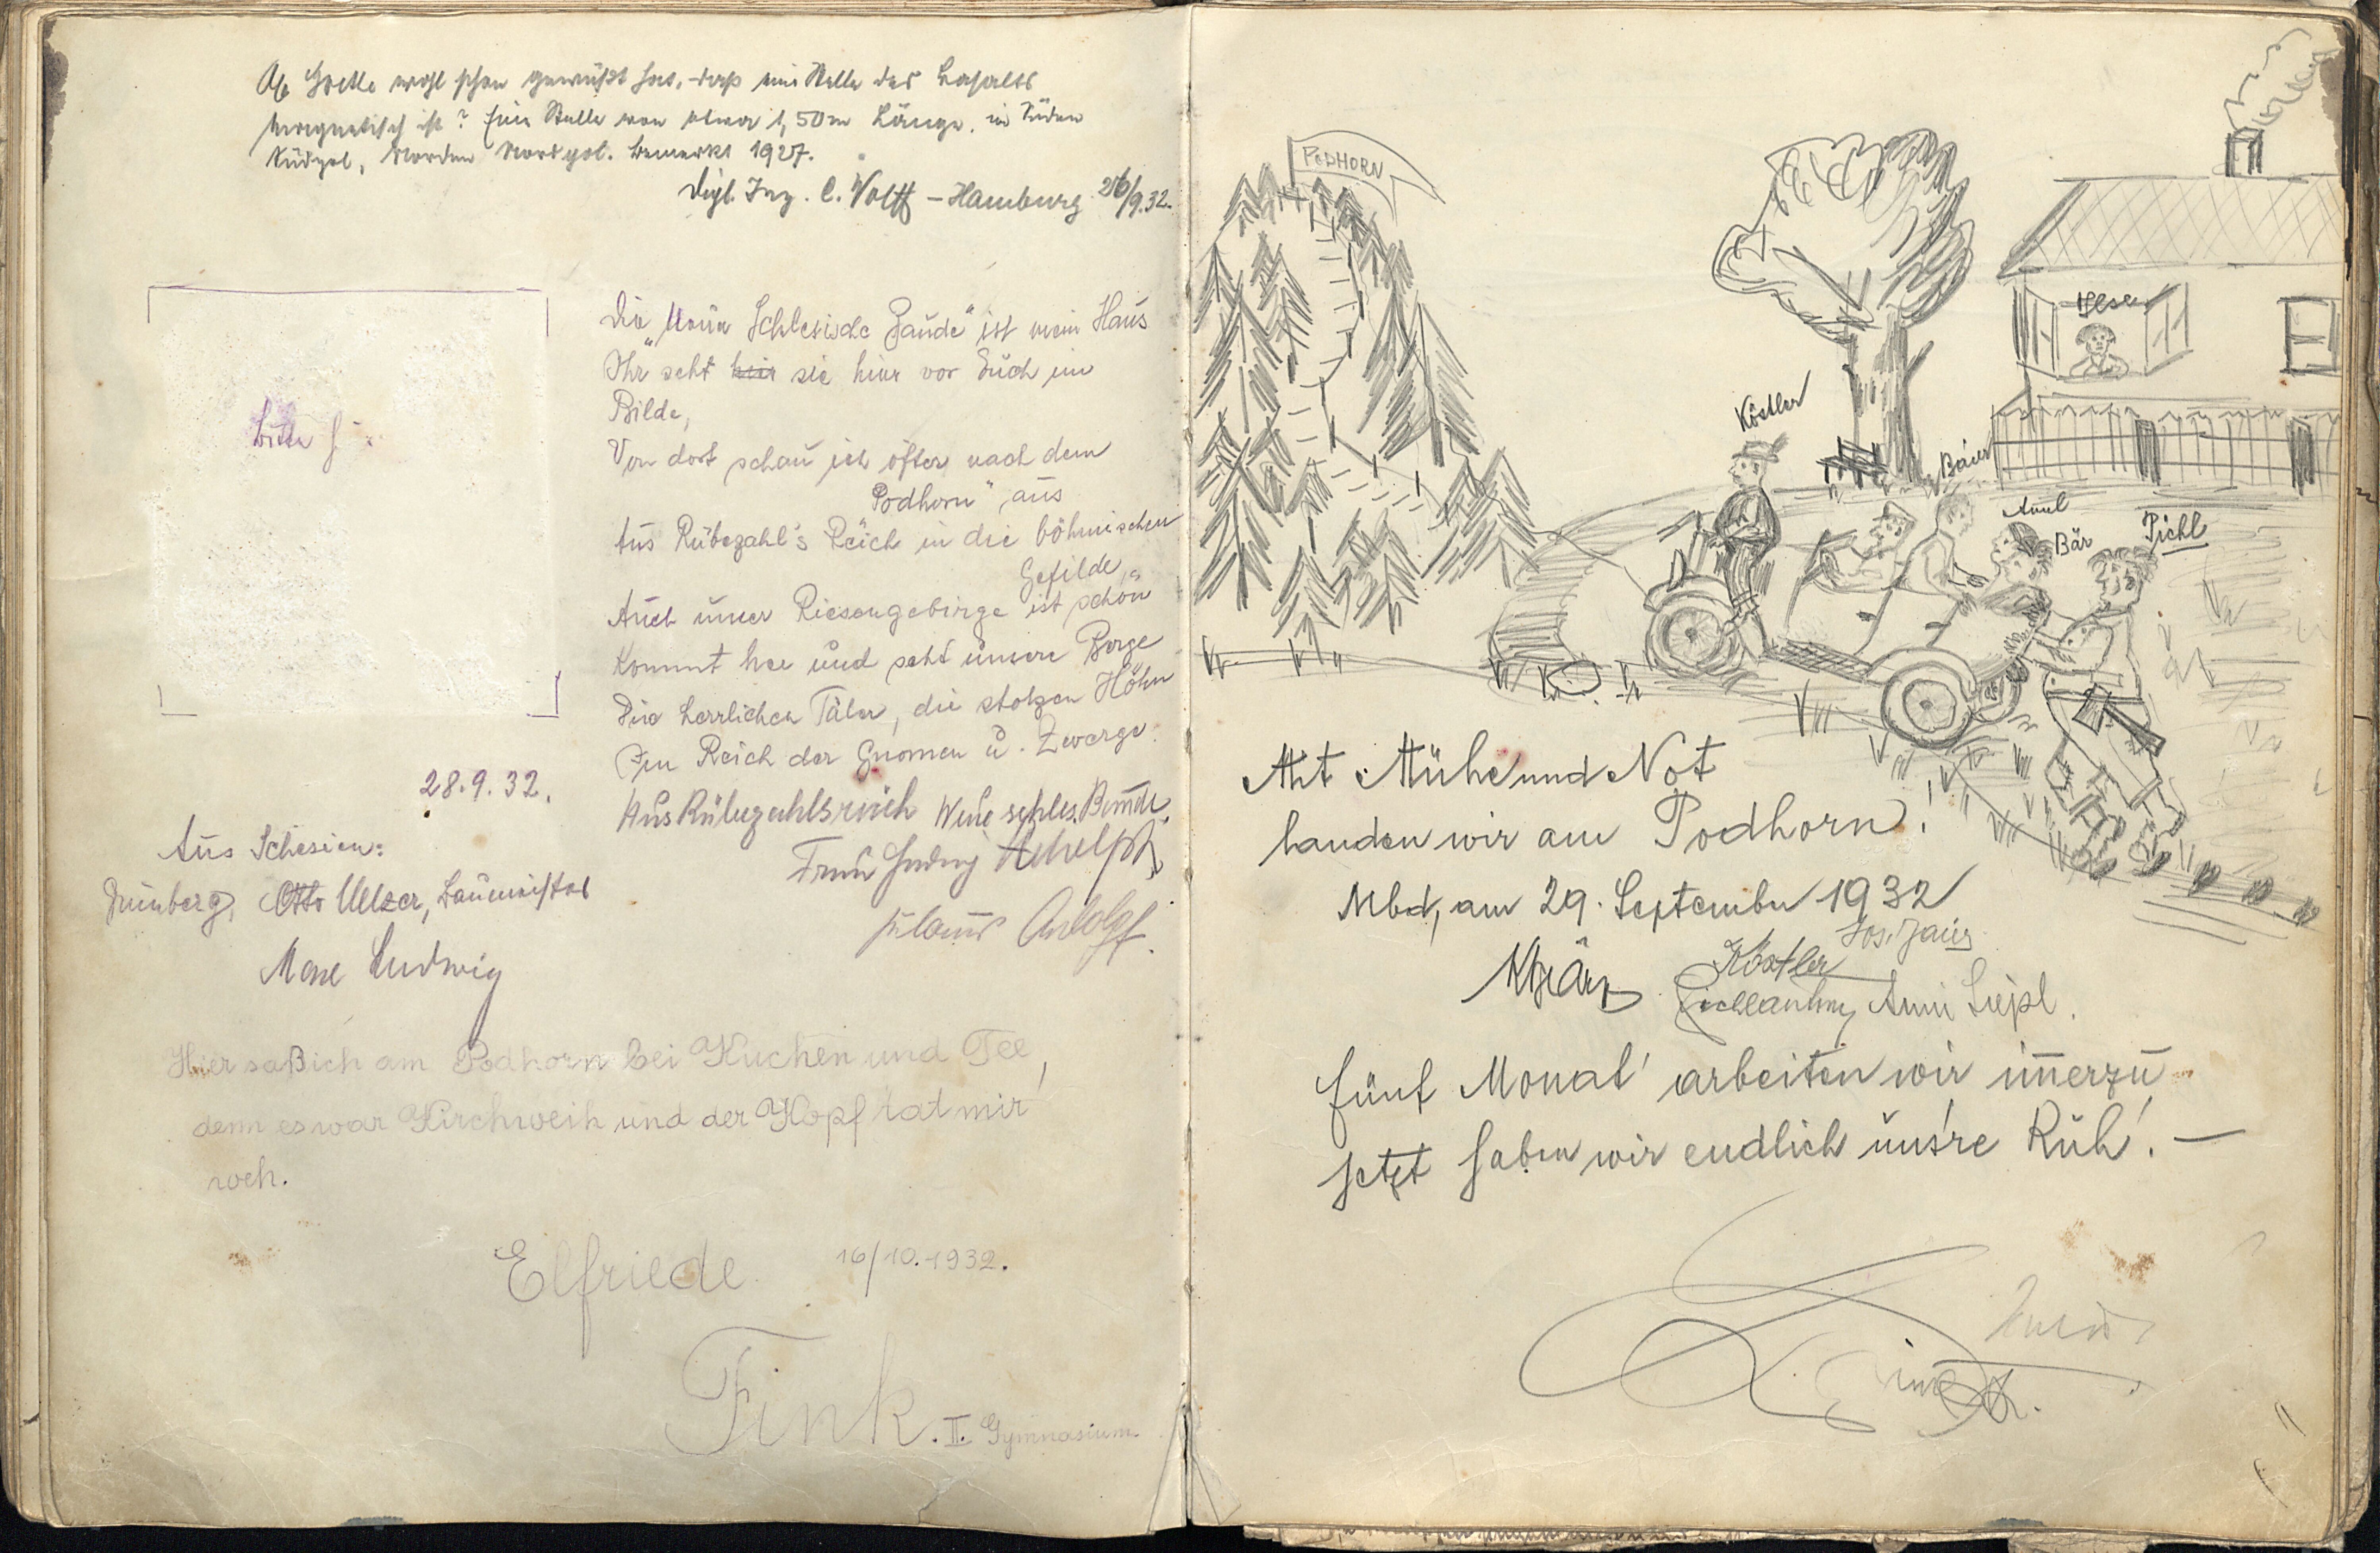 Ob Goethe wohl schon gewußt hat, daß eine Stelle des Basalts
magnetisch ist? Eine Stelle von etwa 1,50 m Länge, im Süden
Südpol, Norden Nordpol. Bemerkt 1927.
Dipl. Ing. C. Wolff – Hamburg 26/9.32.
Die „Neue Schlesische Baude“ ist mein Haus
Ihr seht hier sie hier vor Euch im
Bilde,
Von dort schau ich öfter nach dem
Podhorn“ aus
Aus Rübezahl's Reich in die böhmischen
Gefilde,
Auch unser Riesengebirge ist schön
Kommt her und seht unsere Berge
Die herrlichen Täler, die stolzen Höhn
Im Reich der Gnomen u. Zwerge.
Bitte
28.9.32.
Aus Rübezahlsreich Neue schles. Baude.
Aus Schlesien:
Otto Uelzer, Baumeister
Adolph
Max Ludwig
Hier saß ich am Podhorn bei Kuchen und Tee,
denn es war Kirchweih und der Kopf tat mir
weh.
Elfriede 16/10.1932.
Fink. II. Gymnasium
PODHORN
Köstler
Baier
Anni
Bär
Pichl
Mit Mühe und Not
landen wir am Podhorn!
Mbd, am 29. September 1932
Jos.
Bär Köstler
Anni
Fünf Monat' arbeiten wir immerzu
Jetzt haben wir endlich uns're Ruh'! —